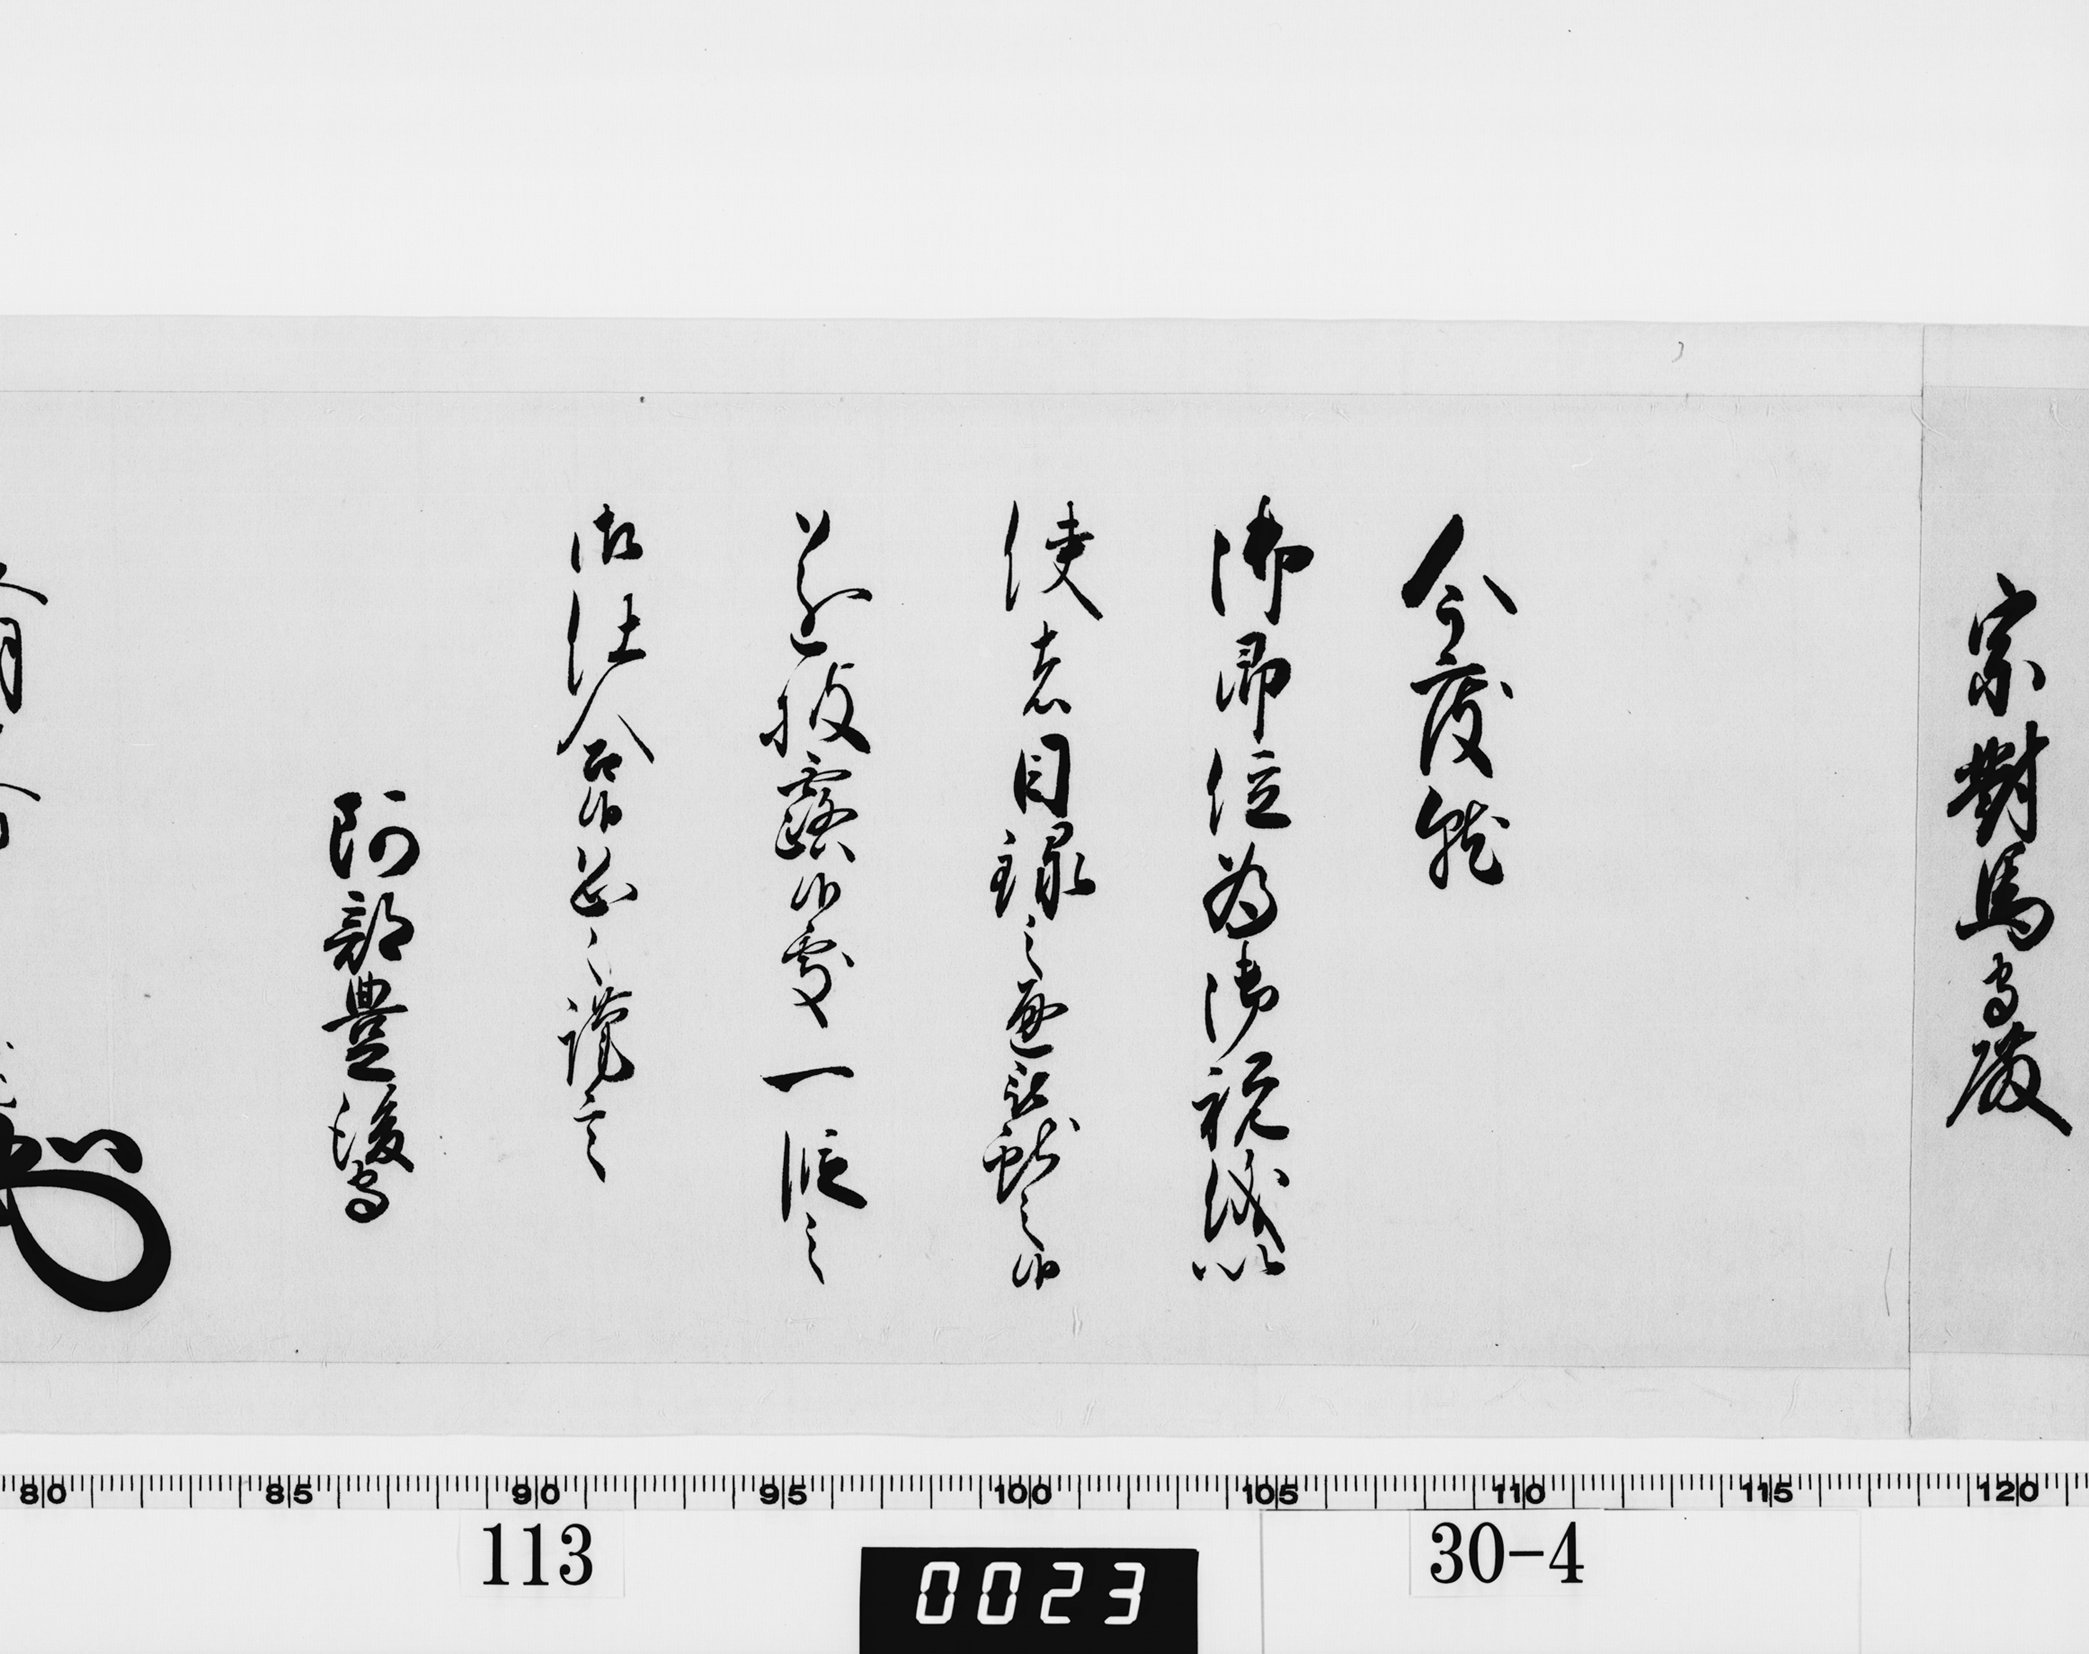 宗對馬守殿
今度就
御即位為御祝儀以
使者目録之通被獻之候
遂披露候處一段之
御仕合候恐々謹言
阿部豊後守
80 85 90 95 100 105 110 115 120
113
0023
30-4